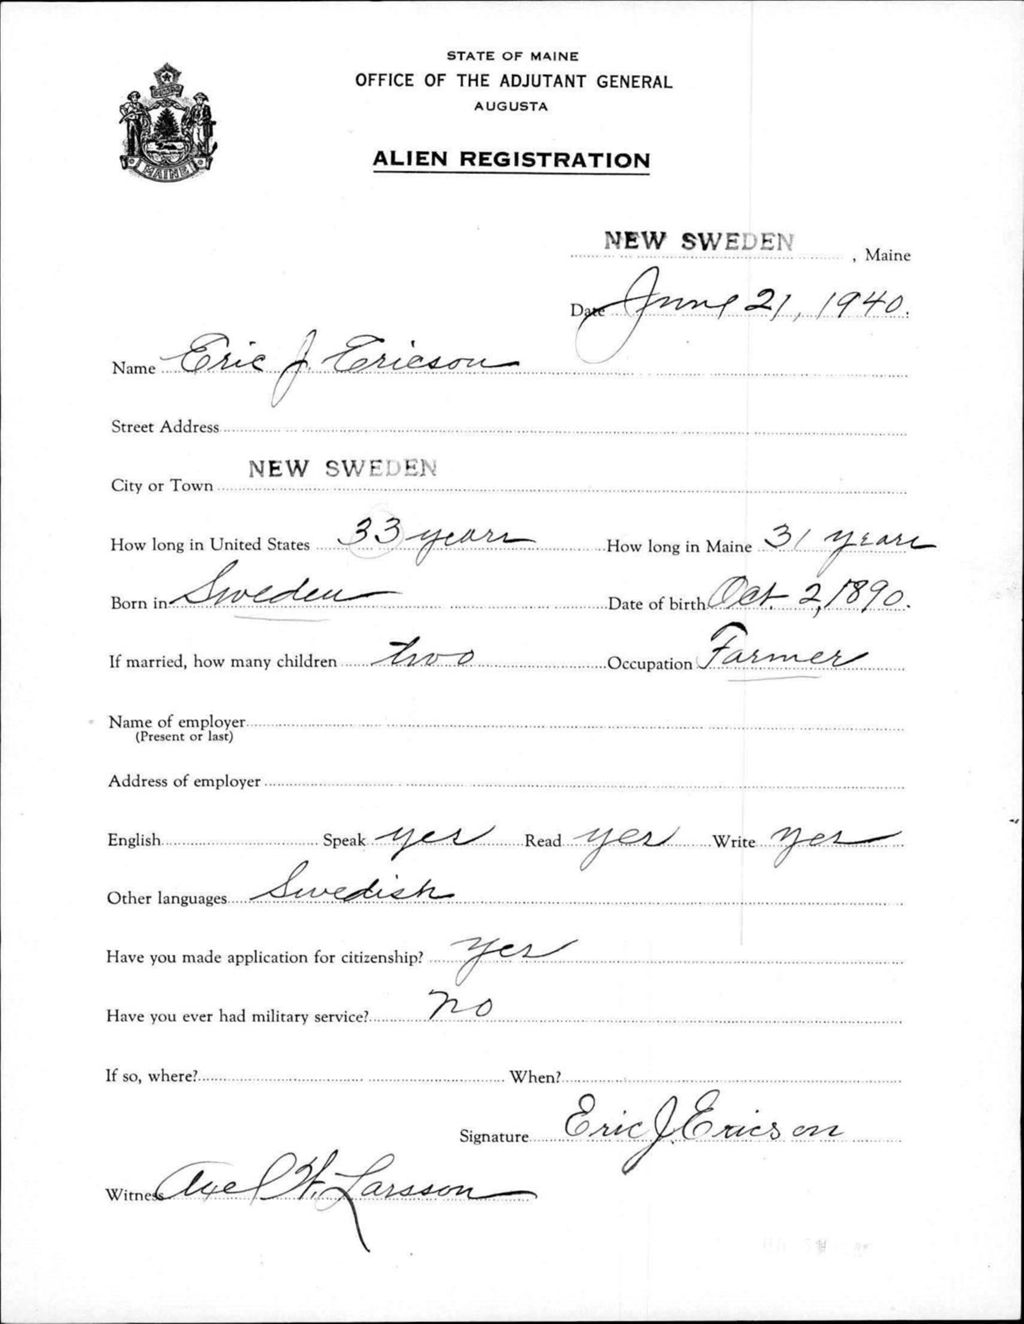 STATE OF MAINE
OFFICE OF THE ADJUTANT GENERAL
AUGUSTA
ALIEN REGISTRATION
MAINE
NEW SWEDEN, Maine
Date June 21, 1940.
Name Eric J. Ericson
Street Address
City or Town NEW SWEDEN
How long in United States 33 years How long in Maine 31 years
Born in Sweden Date of birth Oct. 2, 1890.
If married, how many children two Occupation Farmer
Name of employer
(Present or last)
Address of employer
English Speak yes Read yes Write yes
Other languages Swedish
Have you made application for citizenship? yes
Have you ever had military service? no
If so, where? When?
Signature Eric J. Ericson
Witness Axel W. Larsson